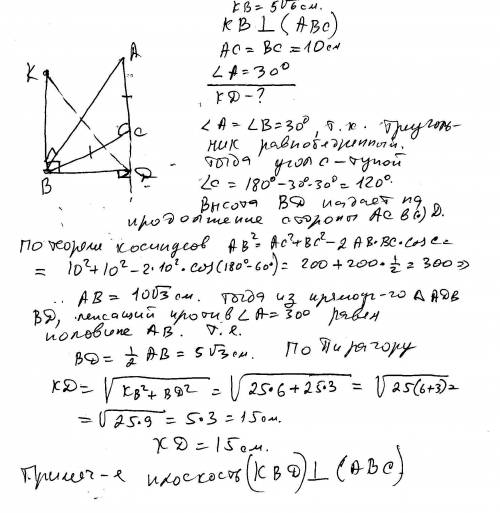 KB = 5√6 см.
KB ⊥ (ABC)
AC = BC = 10 см
∠A = 30°
KD - ?
A
K
C
B
D
∠A = ∠B = 30°, т.к. треуголь-
ник равнобедренный.
Тогда угол C - тупой
∠C = 180° - 30° - 30° = 120°.
Высота BD падает на
продолжение стороны AC в (·) D.
По теореме косинусов AB² = AC² + BC² - 2 AB·BC·cos C =
= 10² + 10² - 2·10²·cos(180° - 60°) = 200 + 200·½ = 300 =>
∴ AB = 10√3 см. Тогда из прямоуг-го Δ ADB
BD, лежащий против ∠A = 30° равен
половине AB. Т.е.
BD = ½ AB = 5√3 см. По Пифагору
KD = √KB² + BD² = √25·6 + 25·3 = √25(6+3) =
= √25·9 = 5·3 = 15 см.
KD = 15 см.
Примеч-е плоскость (KBD) ⊥ (ABC)